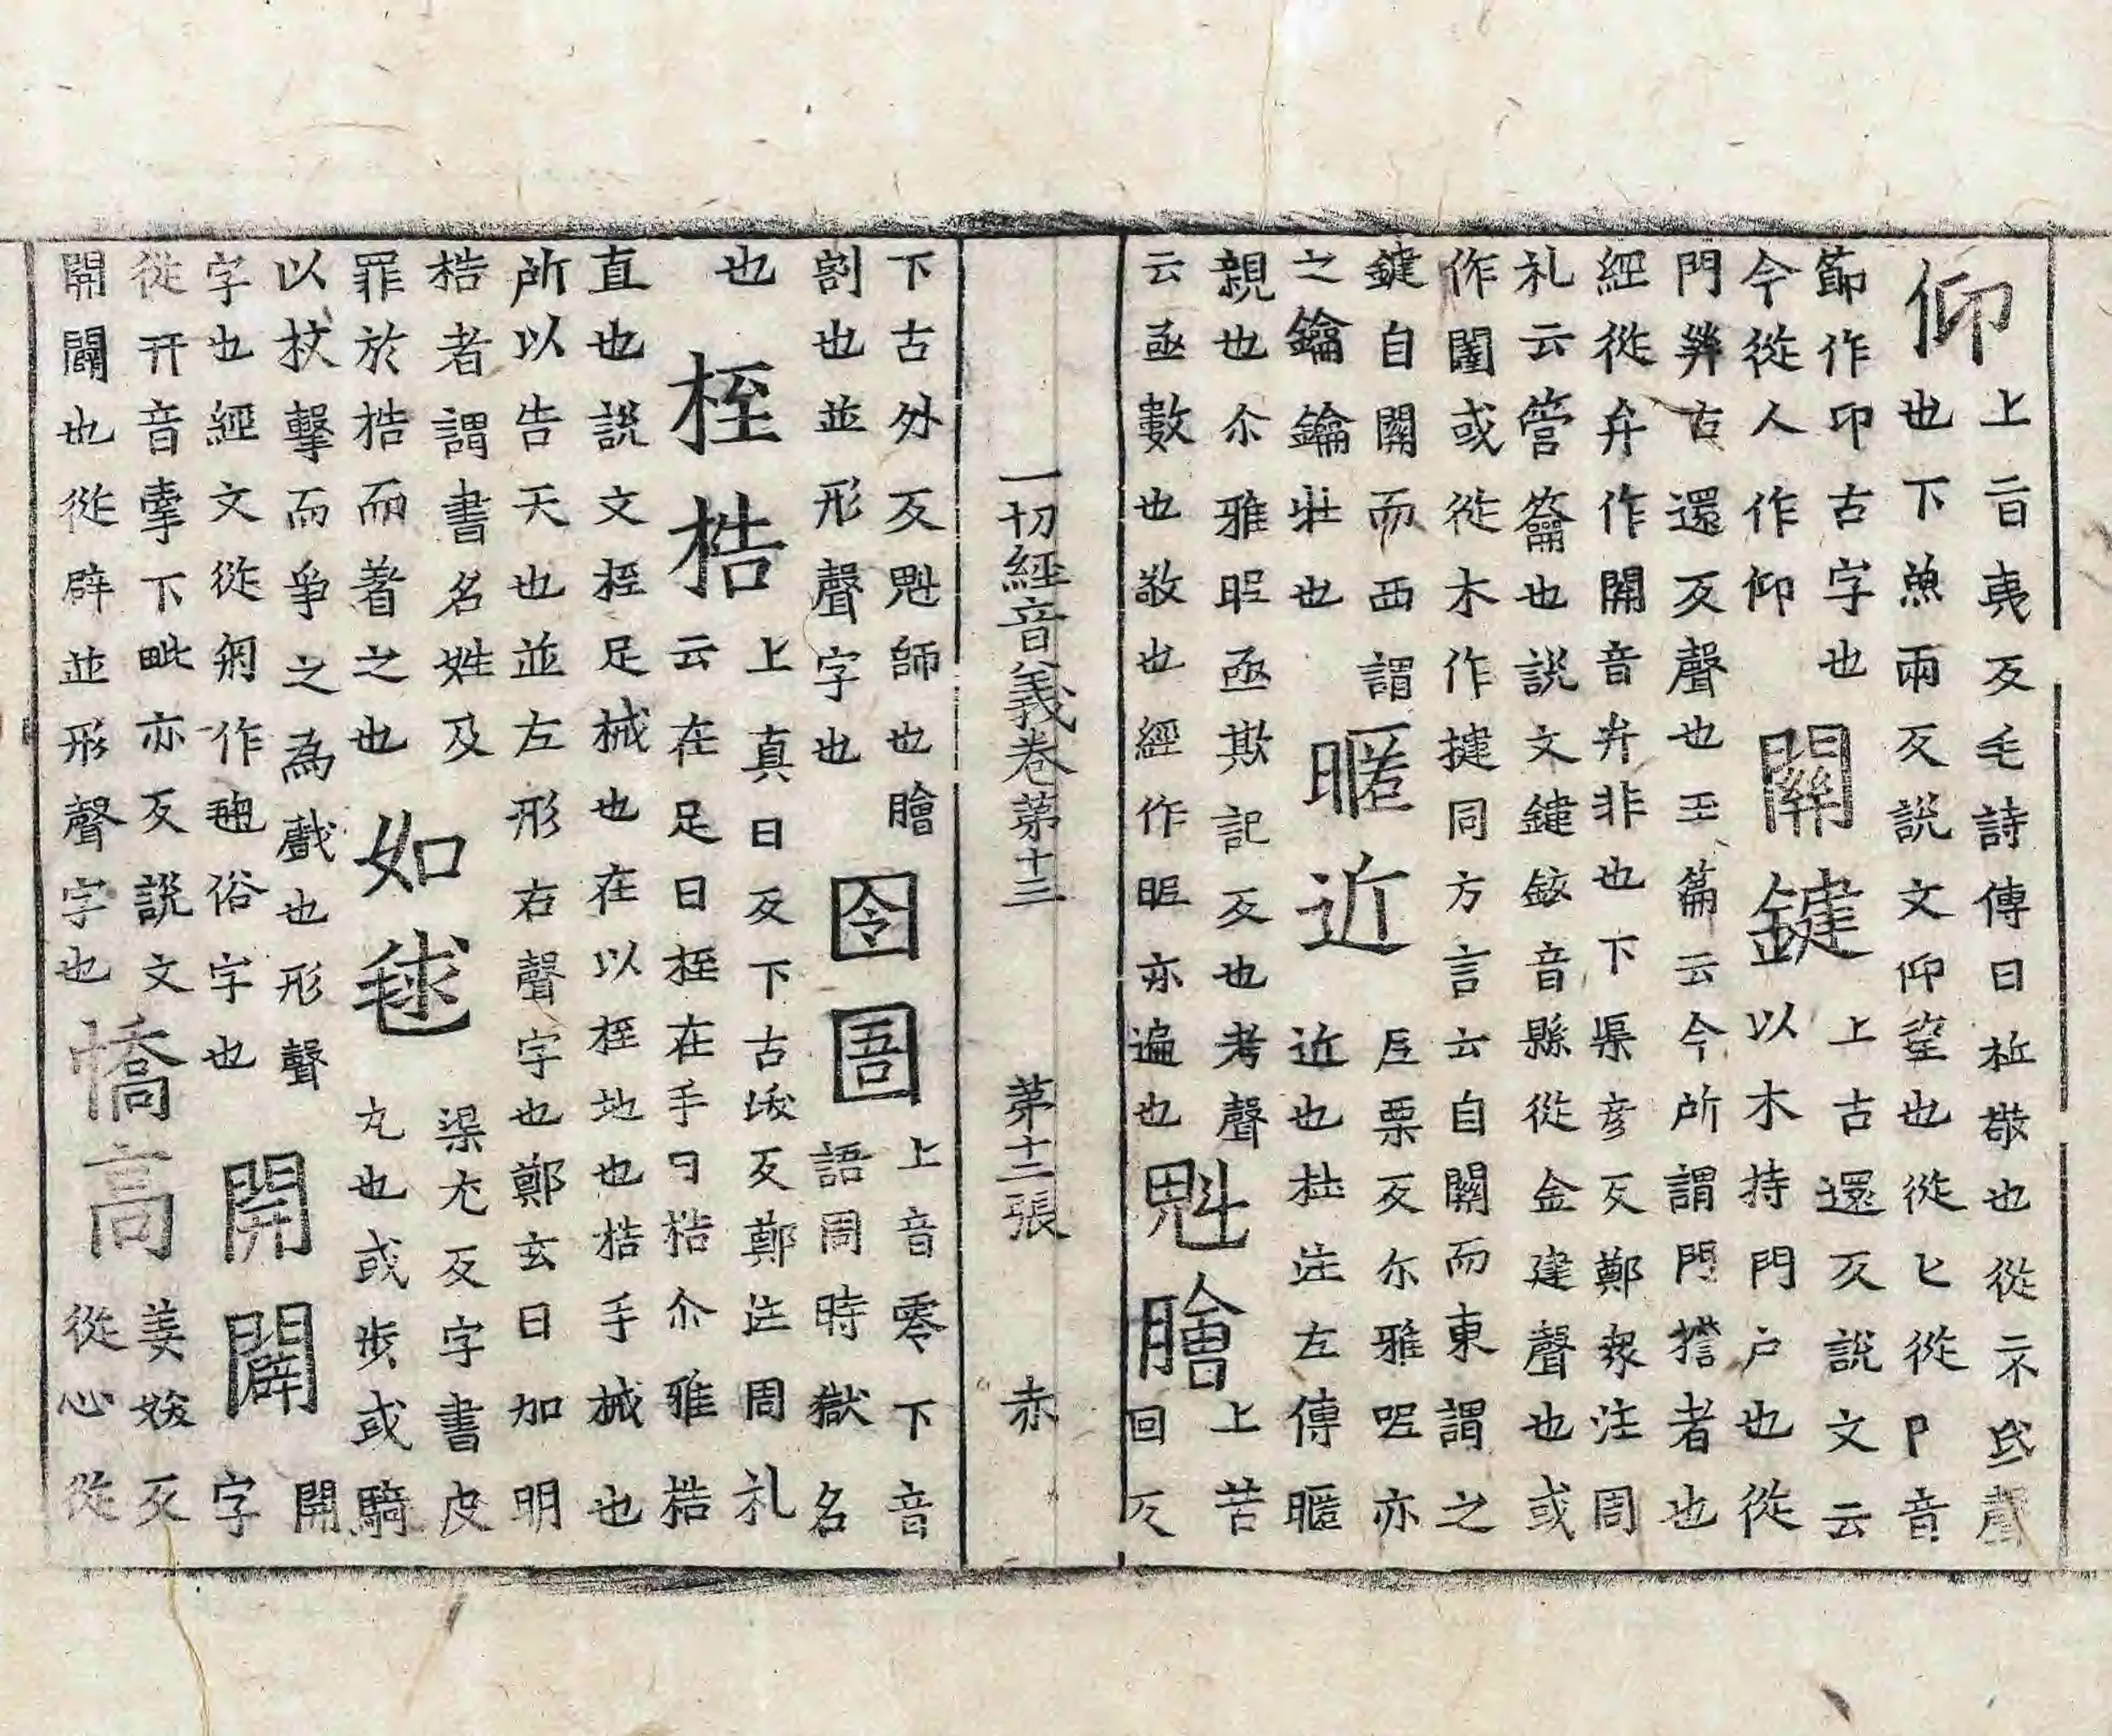 仰
上音夷反毛詩傳曰祗敬也從示氐聲
也下魚兩反說文仰望也從匕從卩音
節作卬古字也
今從人作仰
關鍵
上古還反說文云
以木持門户也從
門𢇇古還反聲也玉篇云今所謂門𢷤者也
經從弁作開音弁非也下渠彦反鄭衆注周
礼云管籥也說文鍵鉉音縣從金建聲也或
作闥或從木作楗同方言云自關而東謂之
鍵自關而西謂
之鑰鑰壯也
暱近
𡰥栗反尒雅昵亦
近也杜注左傳暱
親也尒雅昵亟欺記反也考聲
云亟數也敬也經作昵亦遍也
魁膾
上苦
回反
一切經音義卷第十三 第十二張 赤
下古外反魁師也膾
割也並形聲字也
囹圄
上音零下音
語周時獄名
也
桎梏
上真日反下古㳠反鄭注周礼
云在足曰桎在手曰梏尒雅梏
直也說文桎足械也在以桎地也梏手械也
所以告天也並左形右聲字也鄭玄曰加明
梏者謂書名姓及
罪於梏而著之也
如毬
渠尤反字書皮
丸也或步或騎
以杖擊而爭之為戲也形聲
字也經文從網作𣯛俗字也
開闢
開
字
從幵音牽下毗亦反說文
開闢也從辟並形聲字也
憍高
姜妖反
從心從